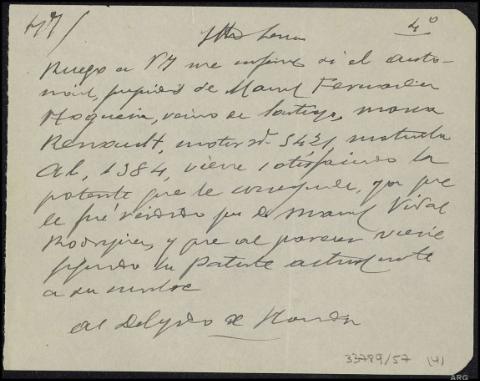 47/
4º
Ruego a VI me informe si el auto-
movil, propiedad de Manuel Fernandez
Nogueira, vecino de Santiago, marca
Renault, motor nº 5421, matricula
1384, viene satisfaciendo la
patente que le corresponde, y por que
le fué vendido por D Manuel Vidal
Rodriguez, y que al parecer viene
pagando su Patente actualmente
a su nombre
al Delegado de Hacienda
33789/57 (4)
ARG